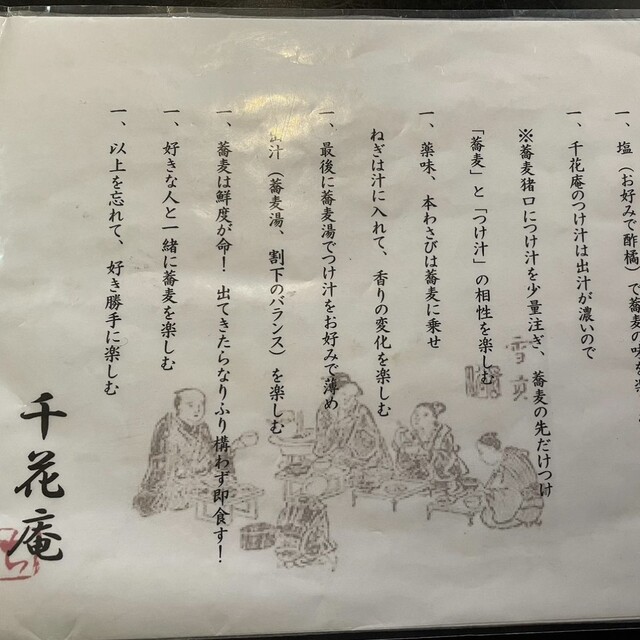 一、塩(お好みで酢橘)で蕎麦の味を
一、千花庵のつけ汁は出汁が濃いので
※蕎麦猪口につけ汁を少量注ぎ、蕎麦の先だけつけ
「蕎麦」と「つけ汁」の相性を楽しむ
一、薬味、本わさびは蕎麦に乗せ
ねぎは汁に入れて、香りの変化を楽しむ
一、最後に蕎麦湯でつけ汁をお好みで薄め
出汁(蕎麦湯、割下のバランス)を楽しむ
一、蕎麦は鮮度が命!出てきたらなりふり構わず即食す!
一、好きな人と一緒に蕎麦を楽しむ
一、以上を忘れて、好き勝手に楽しむ
千花庵